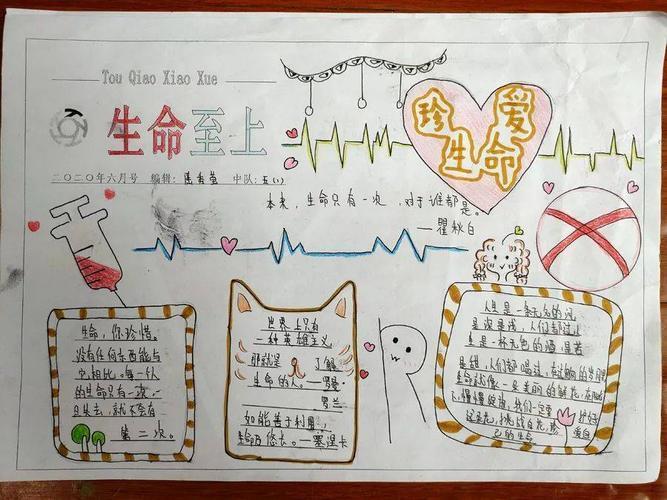 Tou Qiao Xiao Xue
生命至上
珍爱
生命
二〇二〇年六月号 编辑: 中队:五(1)
本来,生命只有一次,对于谁都是。
——瞿秋白
生命,你珍惜。
没有任何东西能与
它相比。每一个人
的生命只有一次,
旦失去,就不会有
第二次。
世界上只有
一种英雄主义
那就是 了解
生命的人。——罗曼
罗兰
如能善于利用,
生命乃悠长。——塞涅卡
人生是一杯无色的
一杯无色的酒,
是甜,人们都喝过,
生命就像一朵美丽的鲜花,
我们一定要
护好
己的生命